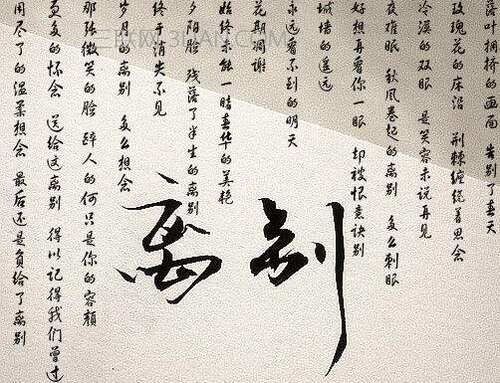 落叶拥挤的画面 告别了春天
玫瑰花的床沿 荆棘缠绕着思念
冷漠的双眼 是笑容未说再见
夜难眠 秋风卷起的离别 多么刺眼
好想再看你一眼 却被恨意诀别
城墙的遥远
永远看不到的明天
花期凋谢
始终未能一睹春华的美艳
夕阳脸 残落了半生的离别
终于消失不见
岁月的离别 多么想念
那张微笑的脸 醉人的何只是你的容颜
更多的怀念 送给这离别 得以记得我们曾过
用尽了的温柔想念 最后还是负给了离别
离别
三联网 3LIAN.COM